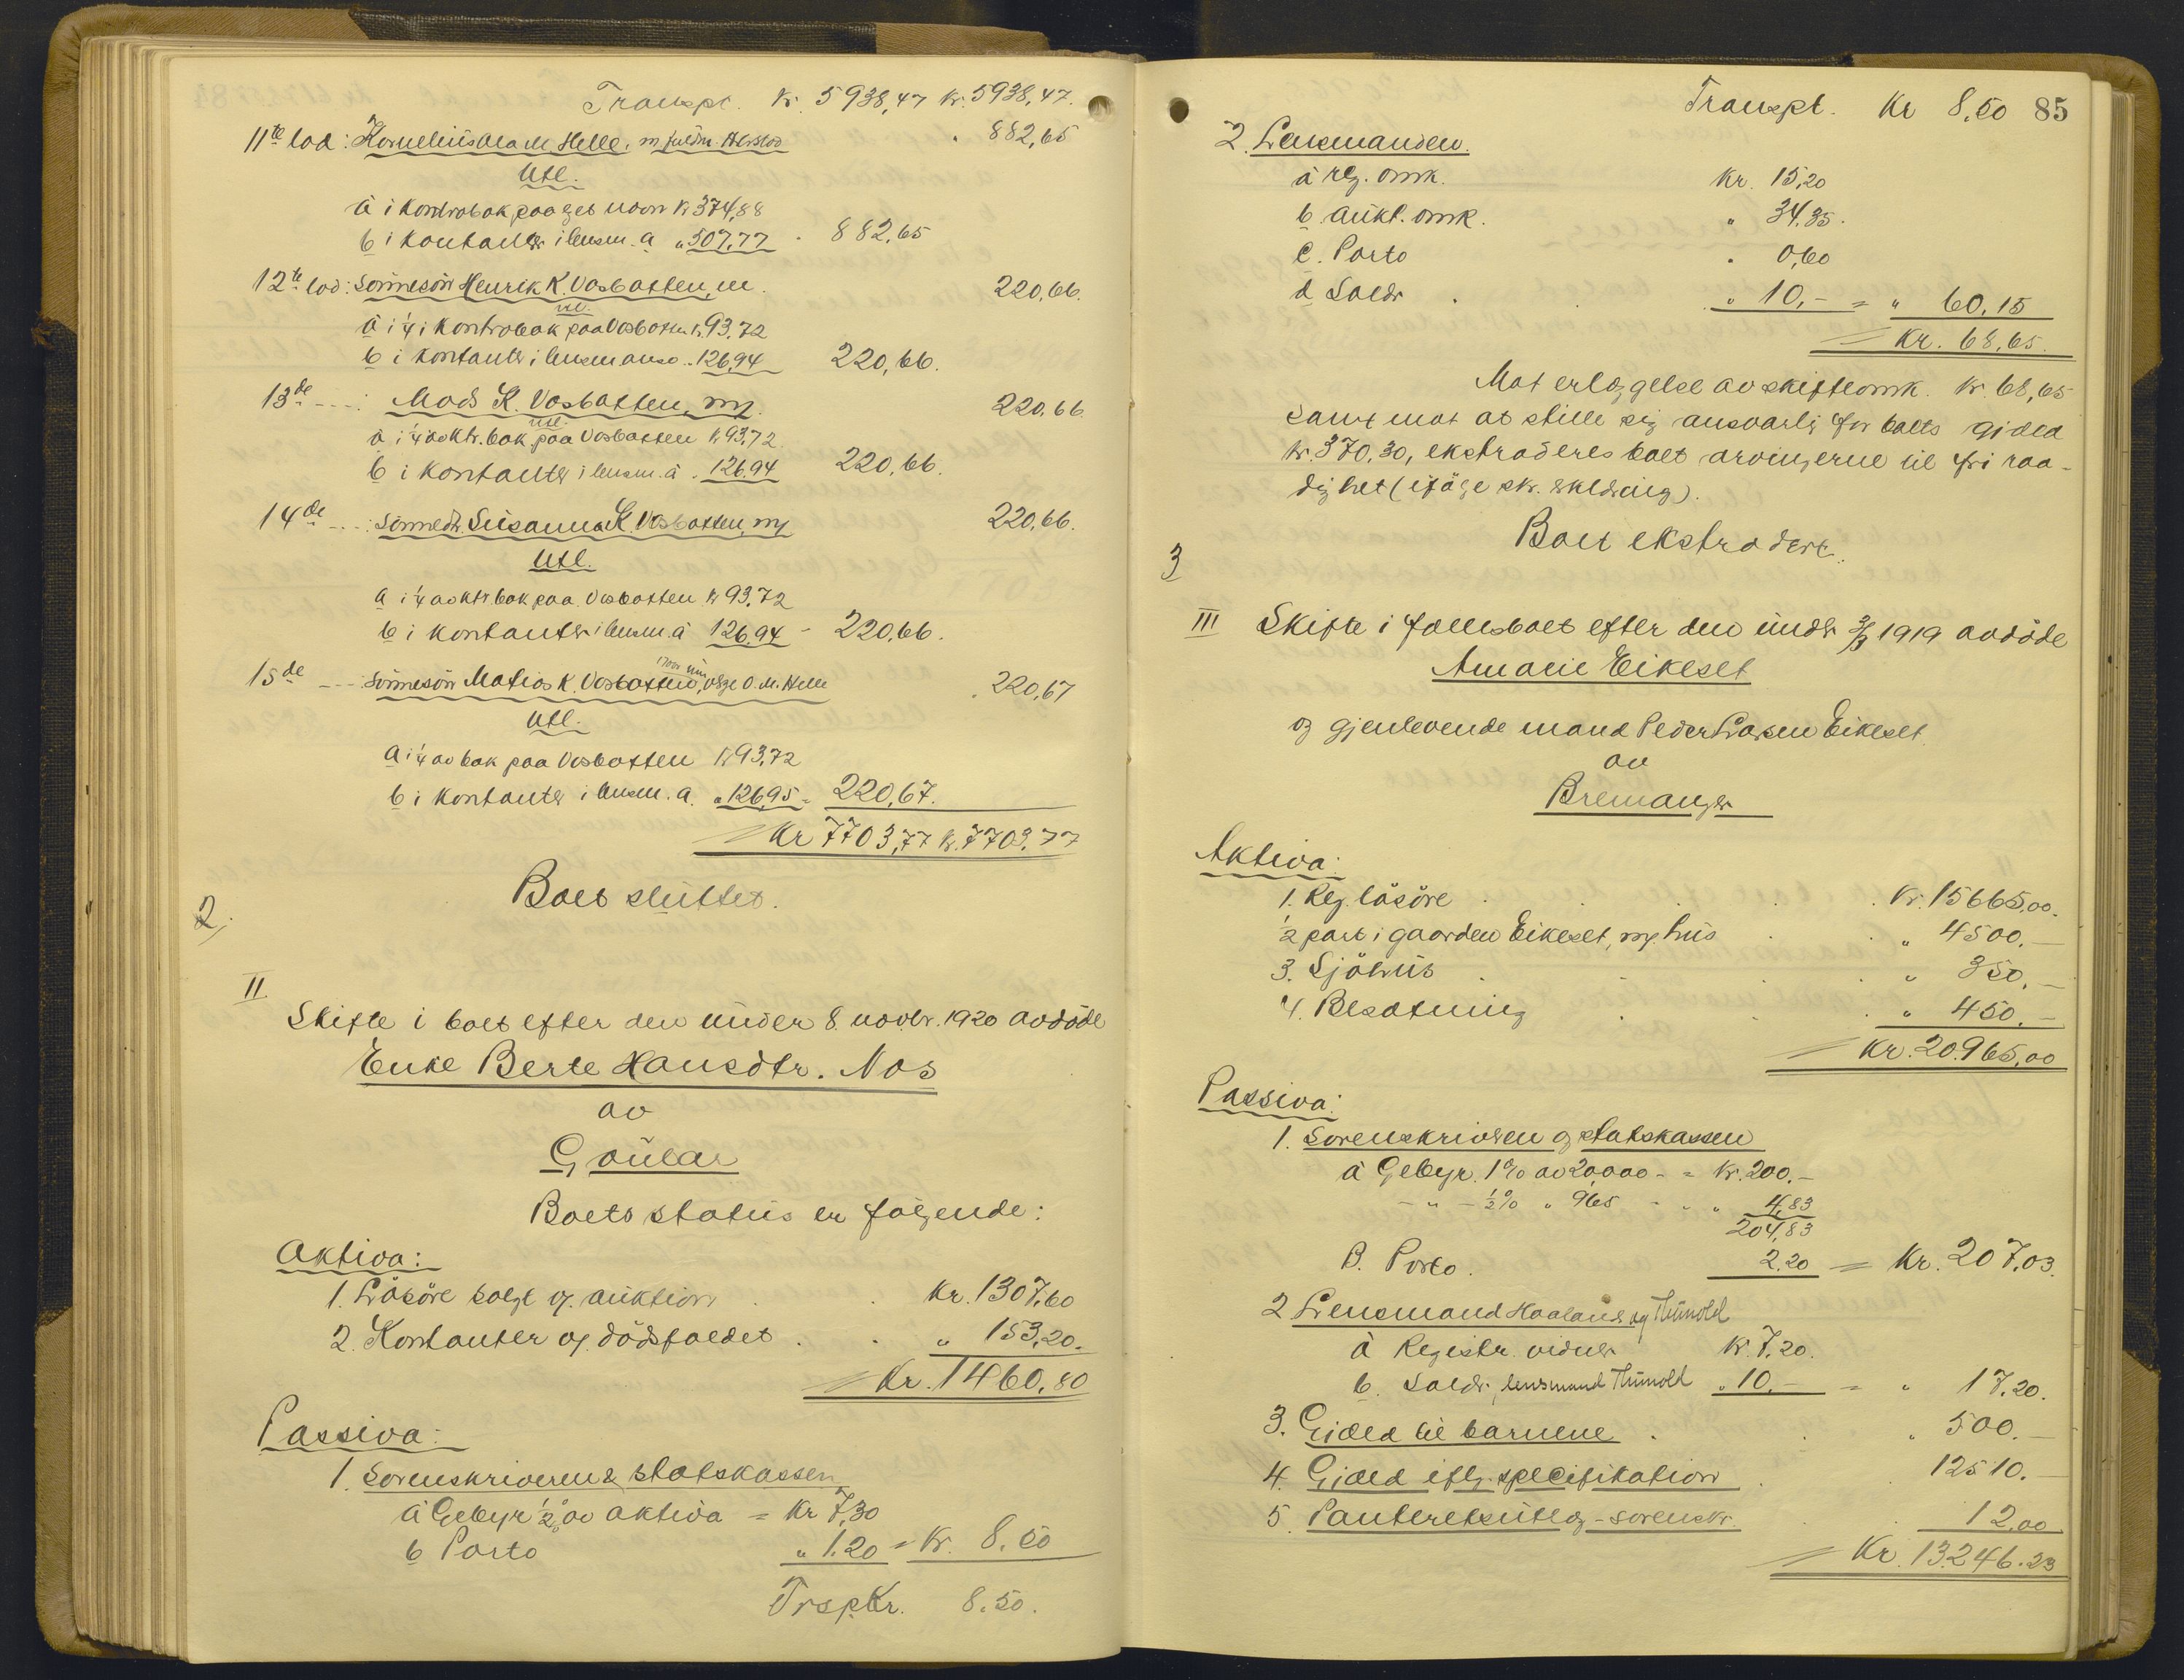 Transpt. Kr. 5938,47 Kr. 5938,47.
11te lod: Kornelius Ola M. Helle, m
. 882,65
Utl.
a i Kontrobok paa Kr 374,88
b i Kontanter i lensm. a „ 507,77 . 882,65
12te lod: Sönnesön Henrik K. Vasbotten, m. 220,66.
utl.
a i ¼ i Kontrobok paa Vasbotten Kr. 93,72
b i Kontanter i lensmans .. 126,94 220,66.
13de - - - : Mads K. Vasbotten, m. 220,66
utl.
a i ¼ av ktr. bok paa Vasbotten Kr 93,72
b i Kontanter i lensm. a . 126,94 220,66.
14de - - - : Sönnedtr. Susanna K. Vasbotten, m 220,66.
Utl.
a i ¼ av ktr. bok paa Vasbotten Kr 93,72
b i Kontanter i lensm. a 126,94 - 220,66.
15de - - - Sönnesön Matias K. Vasbotten, O. M. Helle . 220,67
Utl.
a i ¼ av bok paa Vasbotten Kr 93,72
b i Kontanter i lensm. a. „ 126,95 = 220,67.
= Kr 7703,77 Kr. 7703,77
Boet sluttet.
2,
II
Skifte i boet efter den under 8. novbr. 1920 avdöde
Enke Berte Hansdtr. Nos
av
Gaular
Boets status er følgende:
Aktiva:
1. Lösöre solgt v. auktion . . Kr. 1307,60
2. Kontanter v. dödsfaldet . . „ 153,20.
= Kr. 1460,80
Passiva:
1. Sorenskriveren & statskassen
a Gebyr ½% av aktiva = Kr 7,30
b Porto „ 1.20 = Kr. 8.50
Trsp. Kr. 8.50.
Transpt. Kr 8,50 85
2. Lensmanden.
a reg. omk. Kr. 15,20
b. aukt. omk. „ 34,35.
c. Porto . 0,60
d Saldr . . „ 10,- = „ 60,15
= Kr. 68,65.
Mot erlæggelse av skifteomk. Kr. 68,65
samt mot at stille sig ansvarlig for boets gjæld
Kr. 370.30, ekstraderes boet arvingerne til fri raa-
dighet (ifölge skr. erklæring).
Boet ekstradert.
3
III Skifte i fællesboet efter den under 3/3 1919 avdöde
Amarie Eikeset
og gjenlevende mand Peder Larsen Eikeset
av
Bremanger
Aktiva:
1. Reg. lösöre . . . . Kr. 15665,00.
½ part i gaarden Eikeset, m. hus . . „ 4500.-
3. Sjöhus . . . „ 350.-
4. Besætning . . . „ 450.-
= Kr. 20.965,00
Passiva:
1. Sorenskriveren og statskassen
a Gebyr. 1% av 20,000 - = Kr. 200.-
- „ - ½% „ 965 - - „ 4,83
204,83
B. Porto. 2.20 = Kr. 207.03.
2 Lensmand Haaland og Thunold
a Registr. vidner Kr. 7.20.
b. Saldr, lensmand Thunold „ 10.- = „ 17.20.
3. Gjæld til barnene . . „ 500.-
4. Gjæld iflg. specifikation . . 12510.-
5. Panteretsutlæg - sorenskr. . . 12,00
= Kr. 13.246.23